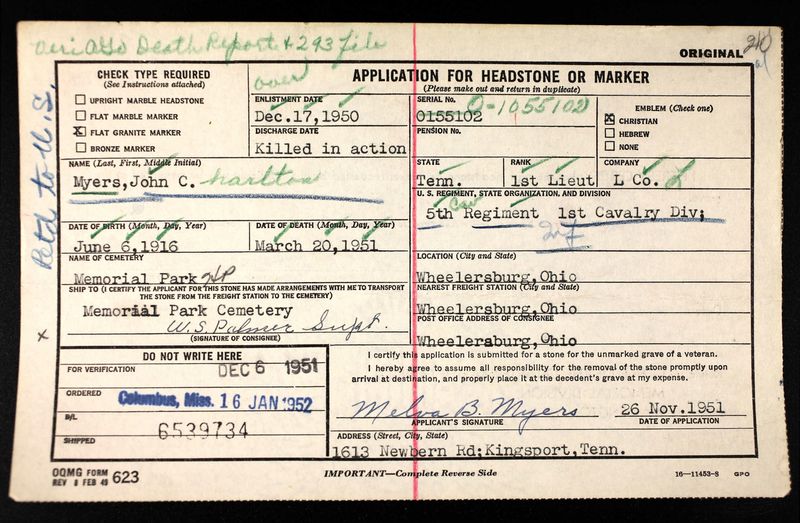 Veri AGO Death Report & 293 file
over
ORIGINAL
210
Retd to U.S.
X
CHECK TYPE REQUIRED
(See Instructions attached)
UPRIGHT MARBLE HEADSTONE
FLAT MARBLE MARKER
X FLAT GRANITE MARKER
BRONZE MARKER
APPLICATION FOR HEADSTONE OR MARKER
(Please make out and return in duplicate)
ENLISTMENT DATE
Dec.17,1950
DISCHARGE DATE
Killed in action
SERIAL No.
O-1055102
0155102
PENSION No.
EMBLEM (Check one)
X CHRISTIAN
HEBREW
NONE
NAME (Last, First, Middle Initial)
Myers,John C. harlton
STATE
Tenn.
RANK
1st Lieut
COMPANY
L Co. L
U. S. REGIMENT, STATE ORGANIZATION, AND DIVISION
Cav
5th Regiment 1st Cavalry Div;
Inf
DATE OF BIRTH (Month, Day, Year)
June 6,1916
DATE OF DEATH (Month, Day, Year)
March 20,1951
NAME OF CEMETERY
Memorial Park HP
LOCATION (City and State)
Wheelersburg,Ohio
SHIP TO (I CERTIFY THE APPLICANT FOR THIS STONE HAS MADE ARRANGEMENTS WITH ME TO TRANSPORT
THE STONE FROM THE FREIGHT STATION TO THE CEMETERY)
Memorial Park Cemetery
W.S. Palmer Supt.
(SIGNATURE OF CONSIGNEE)
NEAREST FREIGHT STATION (City and State)
Wheelersburg,Ohio
POST OFFICE ADDRESS OF CONSIGNEE
Wheelersburg,Ohio
DO NOT WRITE HERE
FOR VERIFICATION
DEC 6 1951
ORDERED
Columbus, Miss. 16 JAN 1952
B/L
6539734
SHIPPED
I certify this application is submitted for a stone for the unmarked grave of a veteran.
I hereby agree to assume all responsibility for the removal of the stone promptly upon
arrival at destination, and properly place it at the decedent's grave at my expense.
Melva B. Myers 26 Nov.1951
APPLICANT'S SIGNATURE DATE OF APPLICATION
ADDRESS (Street, City, State)
1613 Newbern Rd;Kingsport,Tenn.
OQMG FORM
REV 8 FEB 49 623
IMPORTANT—Complete Reverse Side
16—11453-8 GPO